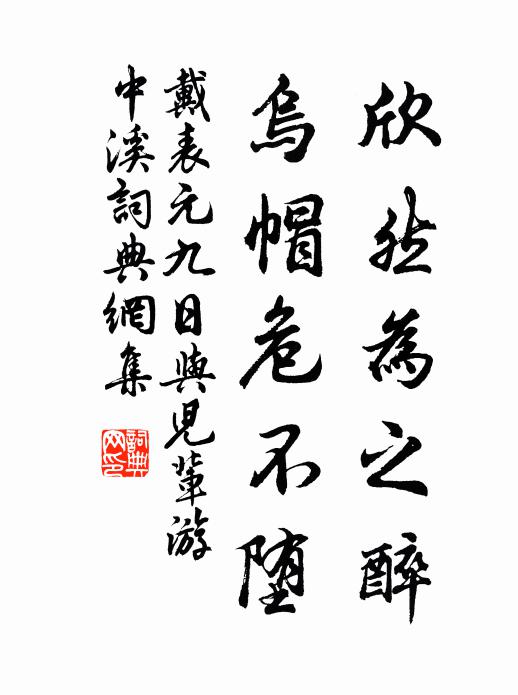 欣然為之醉
烏帽危不堕
戴表元九日與児輩游
中溪詞典網集
詞典网印